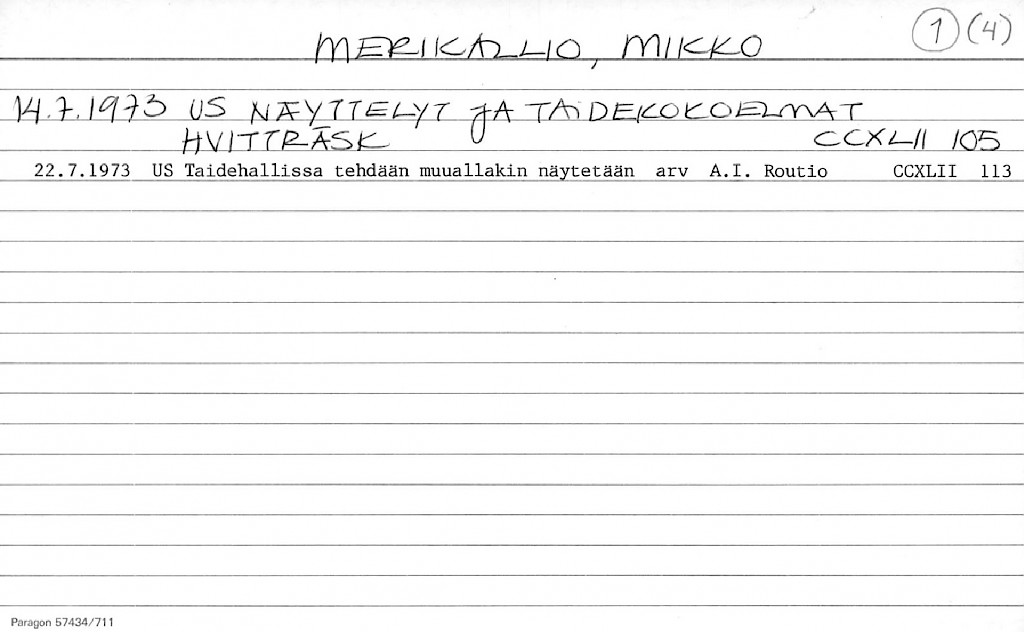 MERIKALLIO, MIKKO
1 (4)
14.7.1973 US NÄYTTELYT JA TAIDEKOKOELMAT
HVITTRÄSK CCXLII 105
22.7.1973 US Taidehallissa tehdään muuallakin näytetään arv A.I. Routio CCXLII 113
Paragon 57434/711